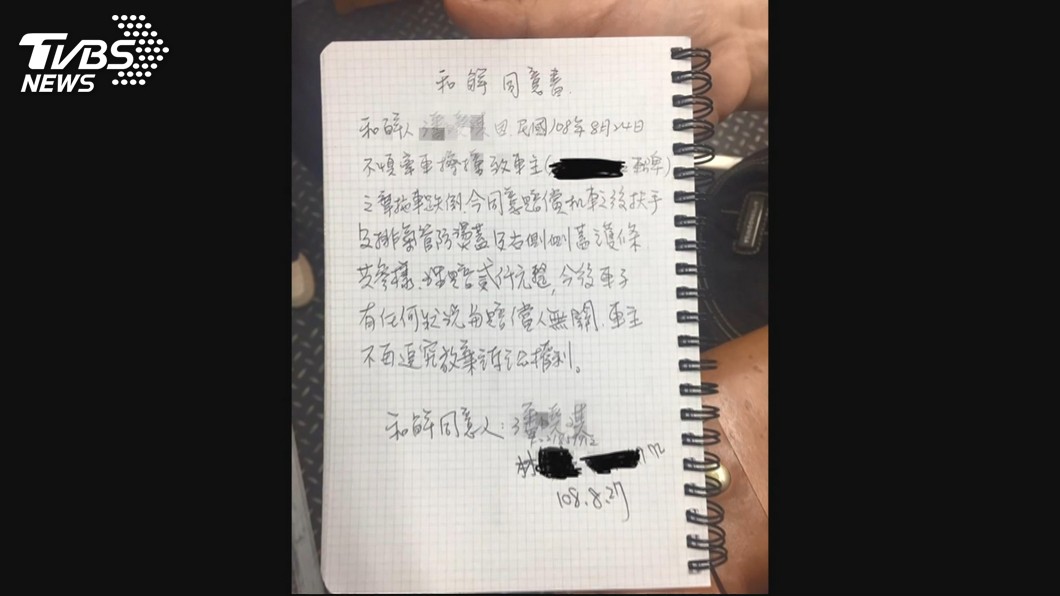 TVBS
NEWS
和解同意書
和解人 因民國108年8月24日
不慎牽車擦撞致車主(
之車拖車跌倒,今同意賠償机車之後扶手
及排氣管防燙蓋及右側側蓋護條
共參樣,現賠貳仟元整,今後車子
有任何狀況與賠償人無關,車主
不再追究放棄訴訟權利。
和解同意人:
林
108.8.27